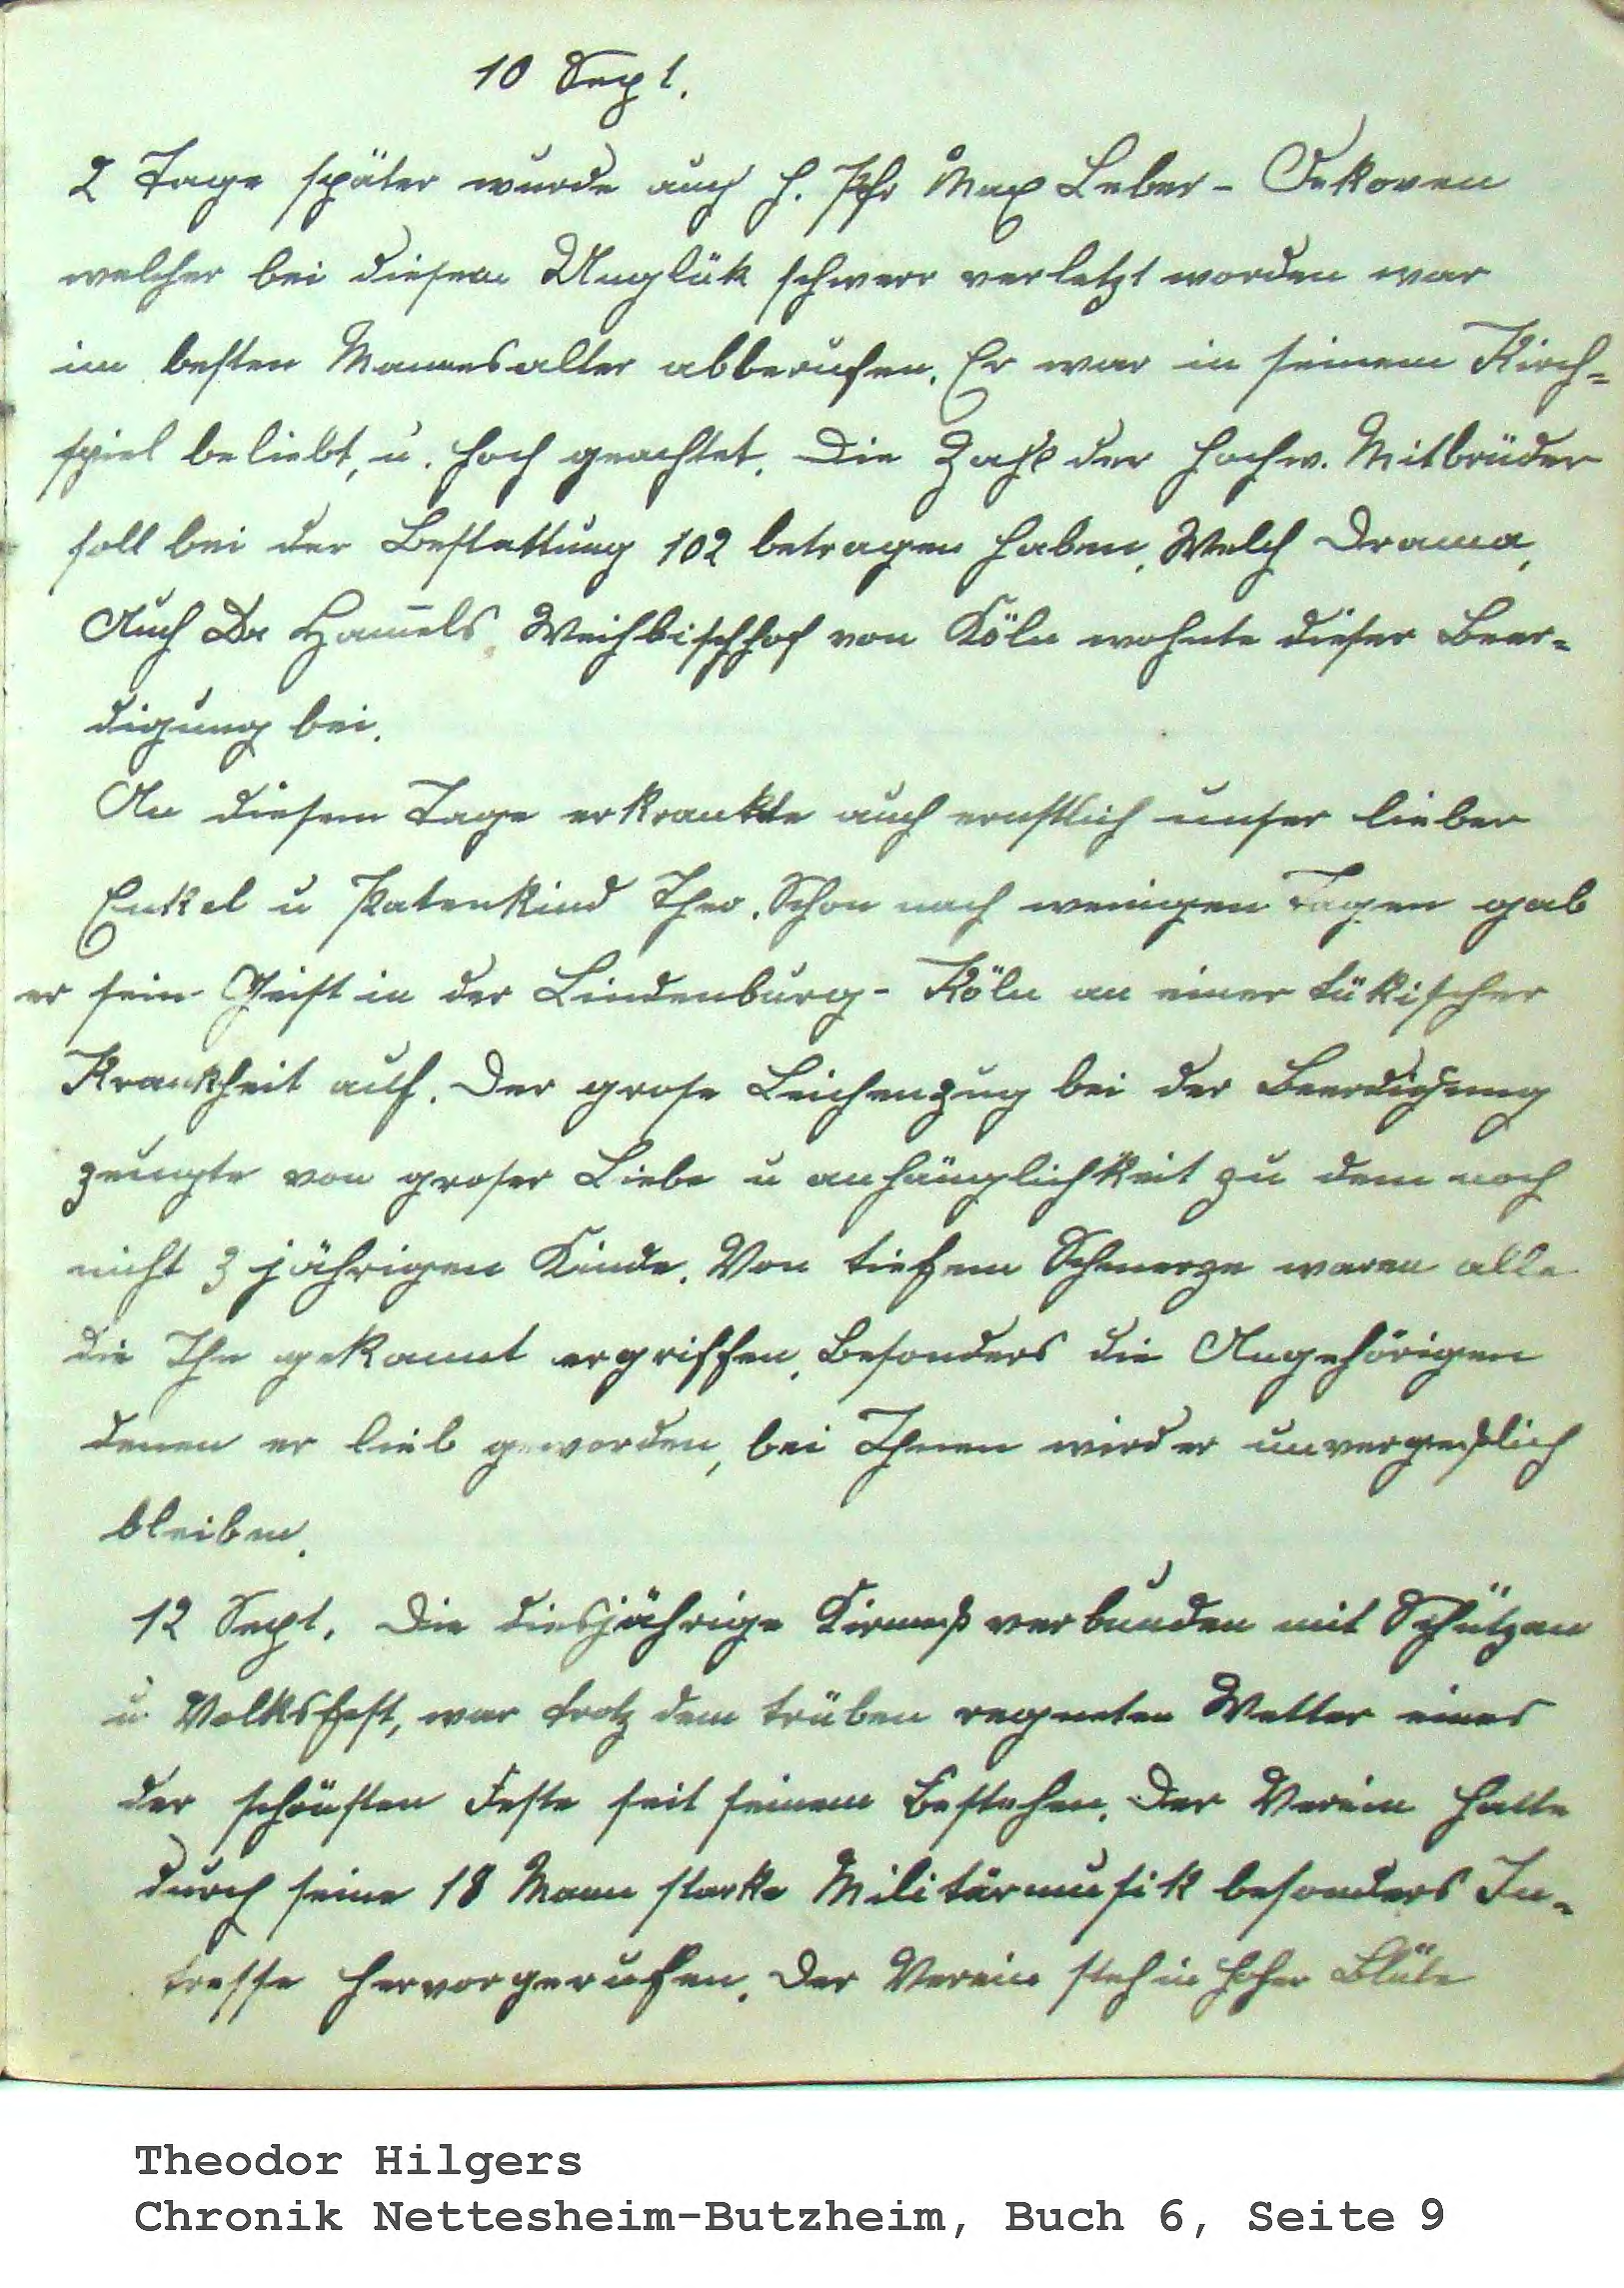 10 Sept.
2 Tage später wurde auch H. Pfr Max Leber - Oekoven
welcher bei diesem Unglük schwerr verletzt worden war
im besten Mannesalter abberufen. Er war in seinem Kirch=
spiel beliebt, u. hoch geachtet. Die Zahl der hochw. Mitbrüder
soll bei der Bestattung 102 betragen haben. Welch Drama,
Auch Dr Ham̅els Weihbischhof von Köln wohnte dieser Beer=
digung bei.
An diesem Tage erkrankte auch ernstlich unser lieber
Enkel u Patenkind Theo. Schon nach wenigen Tagen gab
er sein Geist in der Lindenburg - Köln an einer tükischer
Krankheit auf. Der grose Leichenzug bei der Beerdigung
zeugte von groser Liebe u anhänglichkeit zu dem noch
nicht 3 jährigen Kinde. Von tiefem Schmerze waren alle
die Ihn gekannt ergriffen, besonders die Angehörigen
denen er lieb geworden, bei Ihnen wird er unvergeßlich
bleiben.
12 Sept. Die diesjährige Kirmeß verbunden mit Schützen
u Volksfest, war trotz dem trüben regneten Wetter eines
der schönsten Feste seit seinem Bestehen. Der Verein hatte
durch seine 18 Mann starke Militärmusik besonders In=
tresse hervorgerufen. Der Verein steh in hoher Blüte
Theodor Hilgers
Chronik Nettesheim-Butzheim, Buch 6, Seite 9